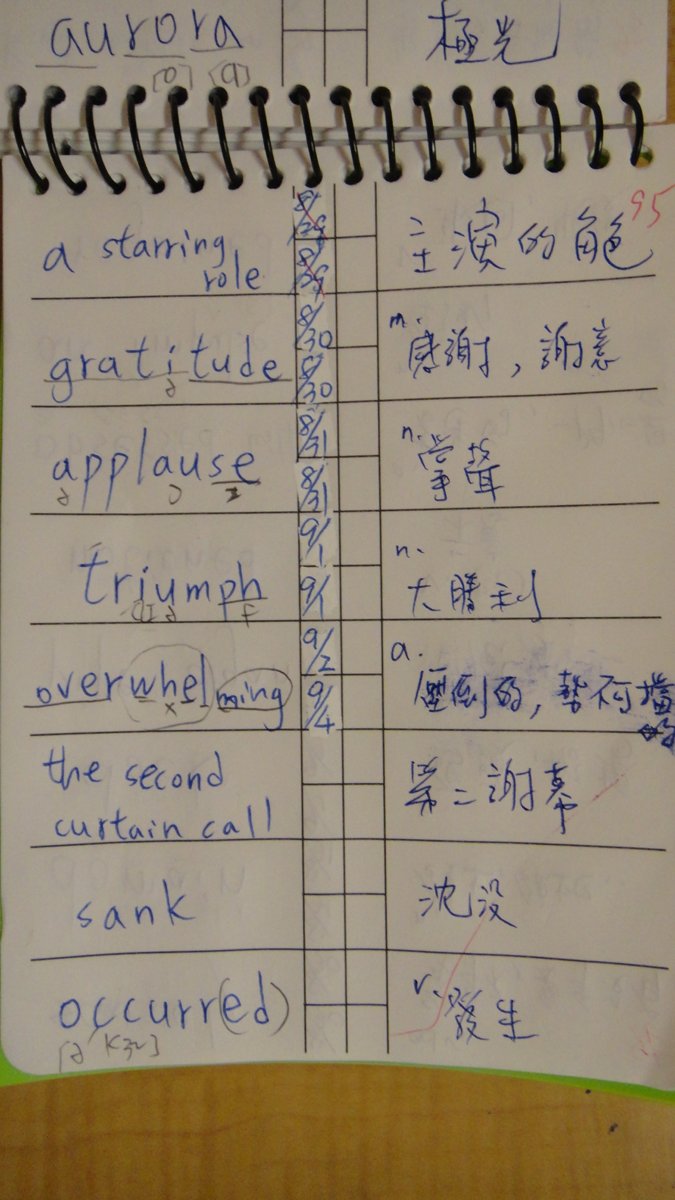 aurora 極光
[o] [a]
95
a starring 主演的角色
role
8/29
8/30
n.
gratitude 感謝, 謝意
ə
8/30
8/31
n.
applause 掌聲
ə ɔ z
8/31
9/1
n.
triumph 大勝利
aɪ ə f
9/1
9/2
a.
overwhelming 壓倒的, 勢不可擋的
x
9/4
the second 第二謝幕
curtain call
sank 沈沒
v.
occurr(ed) 發生